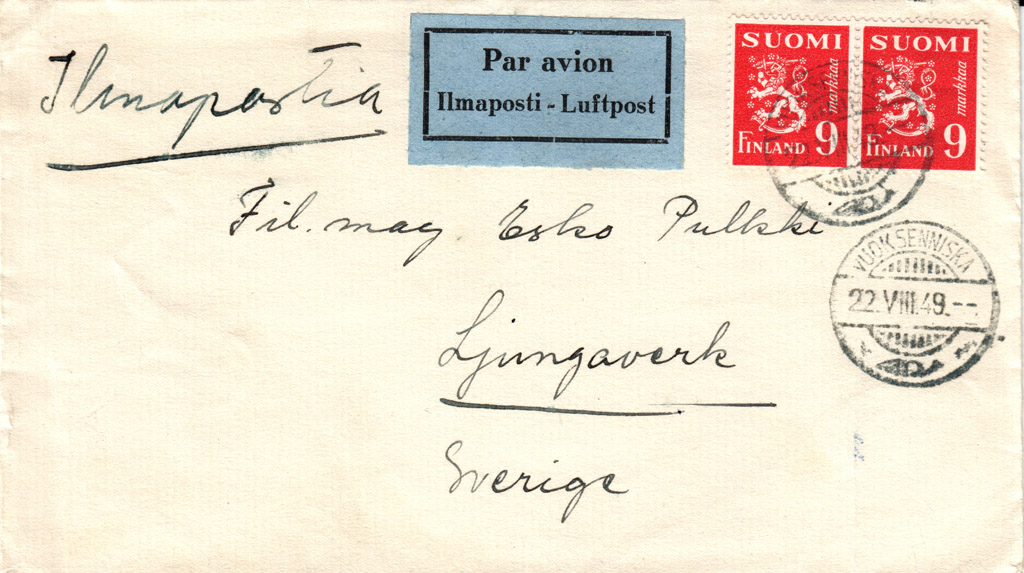 Ilmapostia
Par avion
Ilmaposti - Luftpost
SUOMI
markkaa
FINLAND 9
SUOMI
markkaa
FINLAND 9
Fil. mag Esko Pulkki
VUOKSENNISKA
22.VIII.49.--
Ljungaverk
Sverige